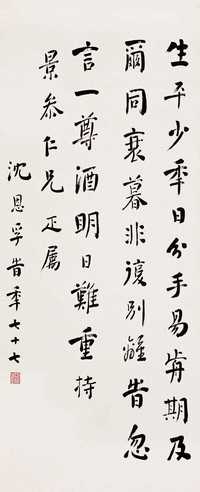 生平少秊日分手易歬期及
爾同衰暮非復別離旹忽
言一尊酒明日難重持
景叅仁兄正屬
沈恩孚旹秊七十七